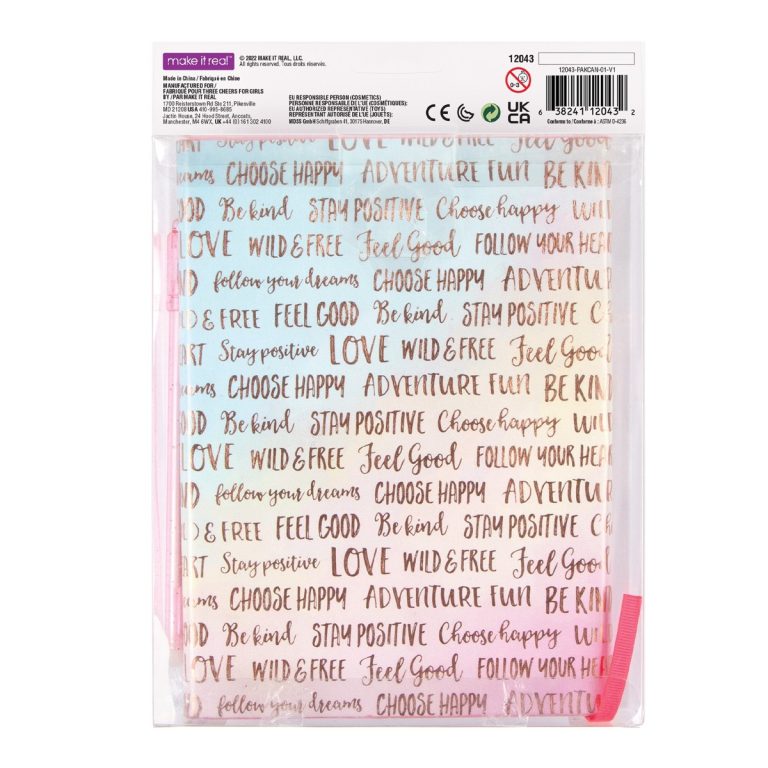 make it real™
© 2022 MAKE IT REAL, LLC.
All rights reserved. Tous droits réservés.
Made in China / Fabriqué en Chine
MANUFACTURED FOR/
FABRIQUÉ POUR THREE CHEERS FOR GIRLS
BY / PAR MAKE IT REAL
1700 Reisterstown Rd Ste 211, Pikesville
MD 21208 USA 410-995-8685
Jactin House, 24 Hood Street, Ancoats,
Manchester, M4 6WX, UK +44 (0) 161 302 4100
EU RESPONSIBLE PERSON (COSMETICS)
PERSONNE RESPONSABLE DE L'UE (COSMÉTIQUES):
EU AUTHORIZED REPRESENTATIVE (TOYS)
REPRÉSENTANT AUTORISÉ DE L'UE (JOUETS):
MDSS GmbH Schiffgraben 41, 30175 Hannover, DE
CE
UK
CA
12043
0-3
12043-PAKCAN-01-V1
6 38241 12043 2
Conforms to / Conforme à : ASTM D-4236
Stay positive LOVE WILD & FREE Feel Good
ams CHOOSE HAPPY ADVENTURE FUN BE KIN
OD Be kind STAY POSITIVE Choose happy WIL
LOVE WILD & FREE Feel Good FOLLOW YOUR HEA
ND follow your dreams CHOOSE HAPPY ADVENTU
D & FREE FEEL GOOD Be kind STAY POSITIVE C
ART Stay positive LOVE WILD & FREE Feel Good
ams CHOOSE HAPPY ADVENTURE FUN BE KIN
OD Be kind STAY POSITIVE Choose happy WIL
LOVE WILD & FREE Feel Good FOLLOW YOUR HEA
ND follow your dreams CHOOSE HAPPY ADVENTU
D & FREE FEEL GOOD Be kind STAY POSITIVE C
ART Stay positive LOVE WILD & FREE Feel Good
ams CHOOSE HAPPY ADVENTURE FUN BE KIN
OD Be kind STAY POSITIVE Choose happy WIL
LOVE WILD & FREE Feel Good FOLLOW YOUR HEA
ND follow your dreams CHOOSE HAPPY ADVENTU